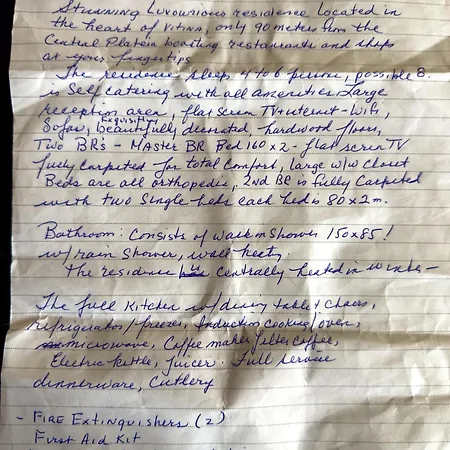 Stunning Luxourious residence located in
the heart of Vitina, only 90 meters from the
Central Plateia boasting restaurants and shops
at your fingertips.
The residence sleeps 4 to 6 persons, possible 8.
is Self catering with all amenities Large
reception area, flat screen TV + internet - Wifi,
Sofas, Exquisitely beautifully decorated, hardwood floors,
Two BR's - Master BR Bed 160 x 2 - flat screen TV
fully carpeted for total comfort, large w/w closet
Beds are all orthopedic, 2nd BR is fully Carpeted
with two single beds each bed is 80 x 2m.
Bathroom: Consists of walk in shower 150x85!
w/rain shower, wall heating.
The residence is centrally heated in winter -
The full kitchen w/dining table + chairs,
refrigerator/freezer, Induction cooking/oven,
microwave, Coffee maker filter coffee,
Electric kettle, juicer. Full service
dinnerware, Cutlery
- Fire Extinguishers (2)
First Aid Kit